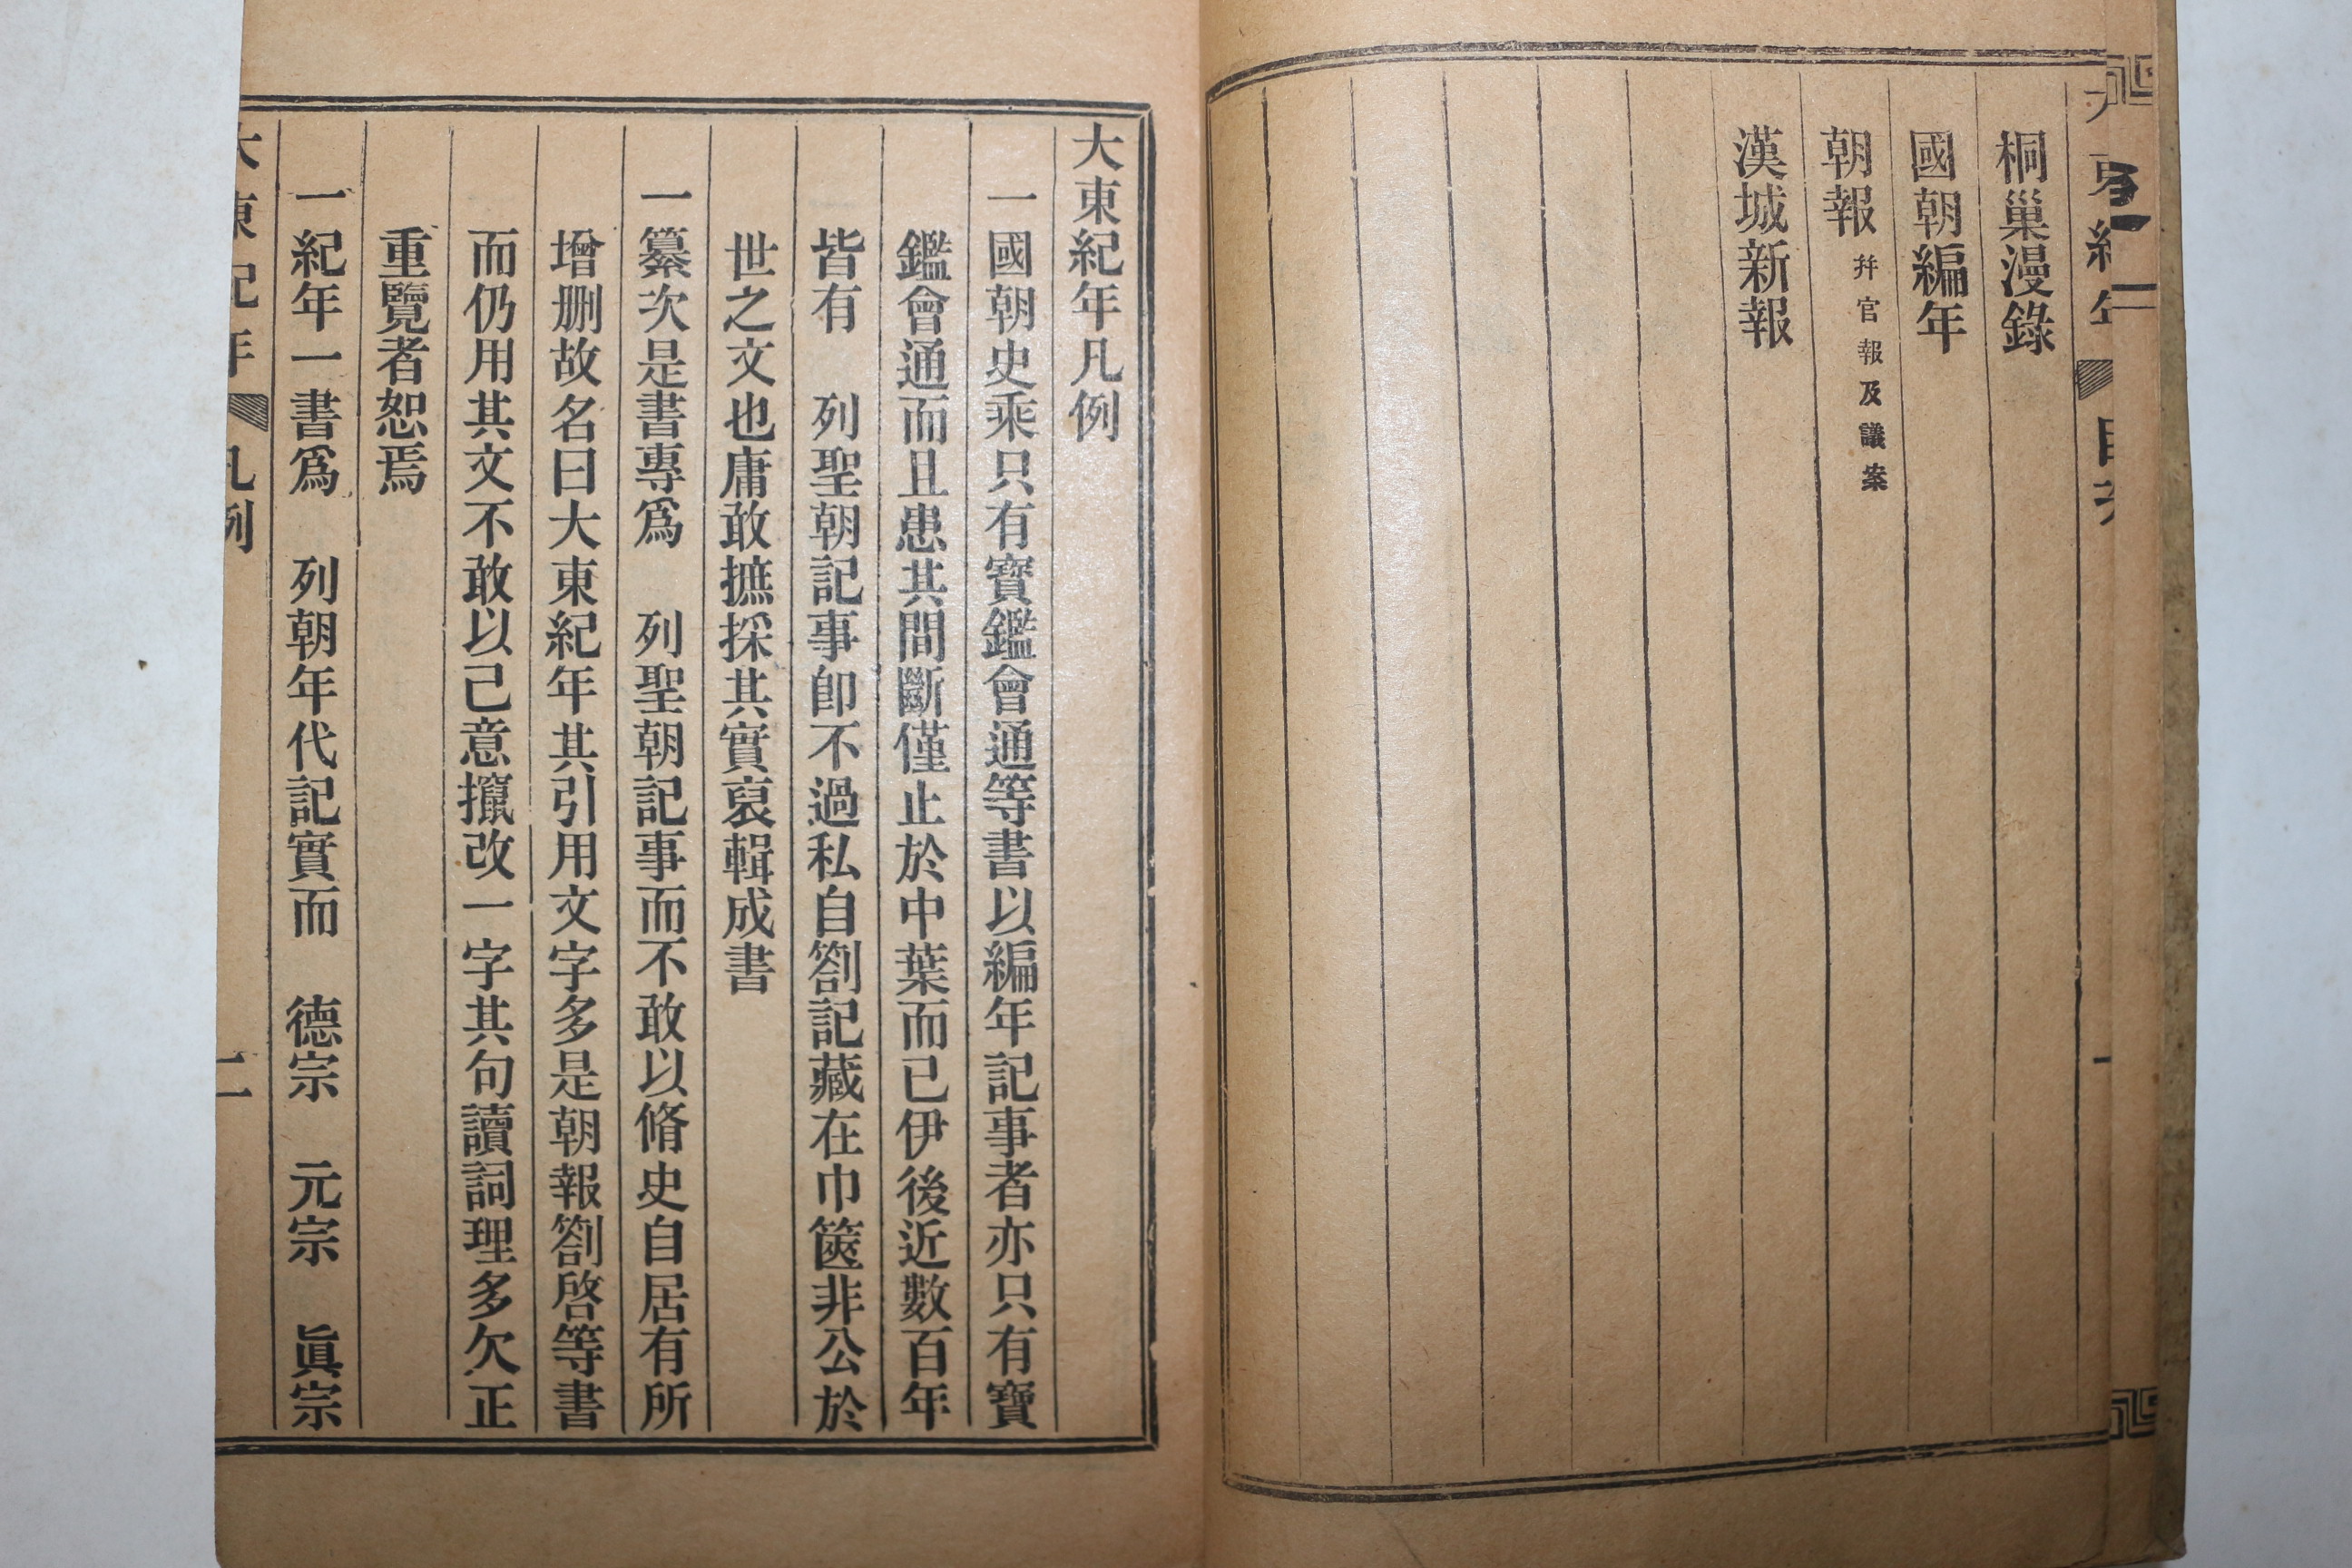 桐巢漫錄
國朝編年
朝報 幷官報及議案
漢城新報
大東紀年凡例
一國朝史乘只有寶鑑會通等書以編年記事者亦只有寶
鑑會通而且患其間斷僅止於中葉而已伊後近數百年
皆有　列聖朝記事卽不過私自劄記藏在巾篋非公於
世之文也庸敢摭採其實裒輯成書
一纂次是書專爲　列聖朝記事而不敢以脩史自居有所
增刪故名曰大東紀年其引用文字多是朝報劄啓等書
而仍用其文不敢以己意攛改一字其句讀詞理多欠正
重覽者恕焉
一紀年一書爲　列朝年代記實而　德宗　元宗　眞宗
大東紀年 凡例 二